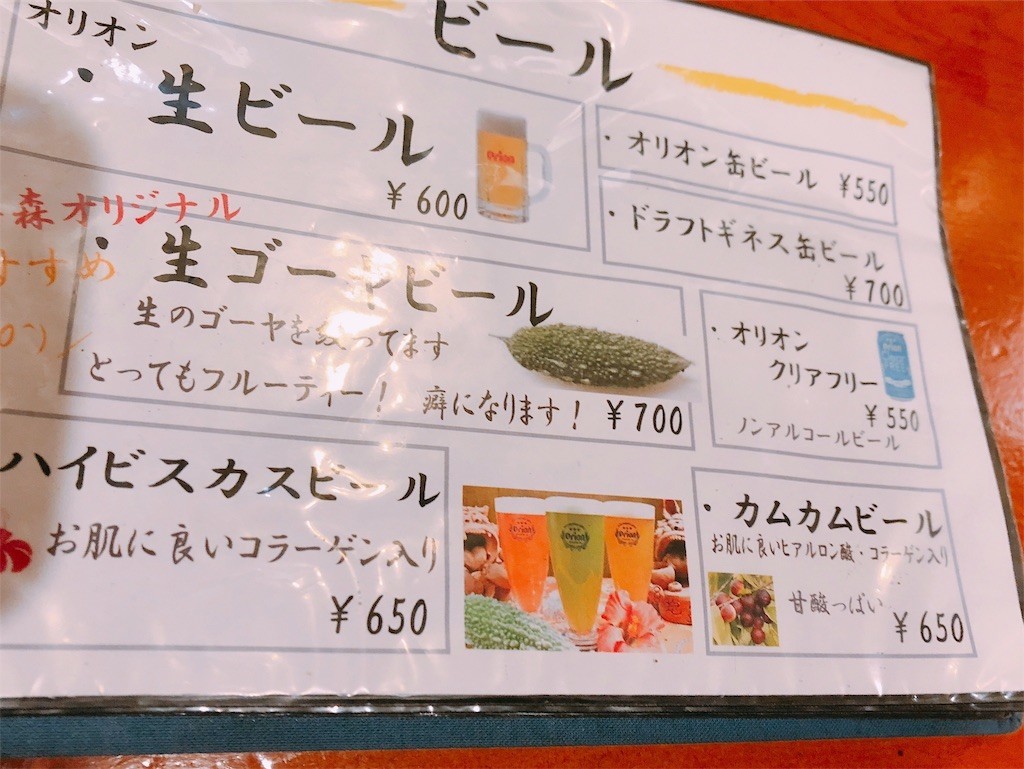 ビール
オリオン
・生ビール
¥600
・オリオン缶ビール ¥550
・ドラフトギネス缶ビール
¥700
森オリジナル
すすめ
・生ゴーヤビール
生のゴーヤを絞ってます
とってもフルーティー!
癖になります! ¥700
・オリオン
クリアフリー
¥550
ノンアルコールビール
ハイビスカスビール
お肌に良いコラーゲン入り
¥650
・カムカムビール
お肌に良いヒアルロン酸・コラーゲン入り
甘酸っぱい
¥650
Orion
Orion
Orion
Orion
Orion